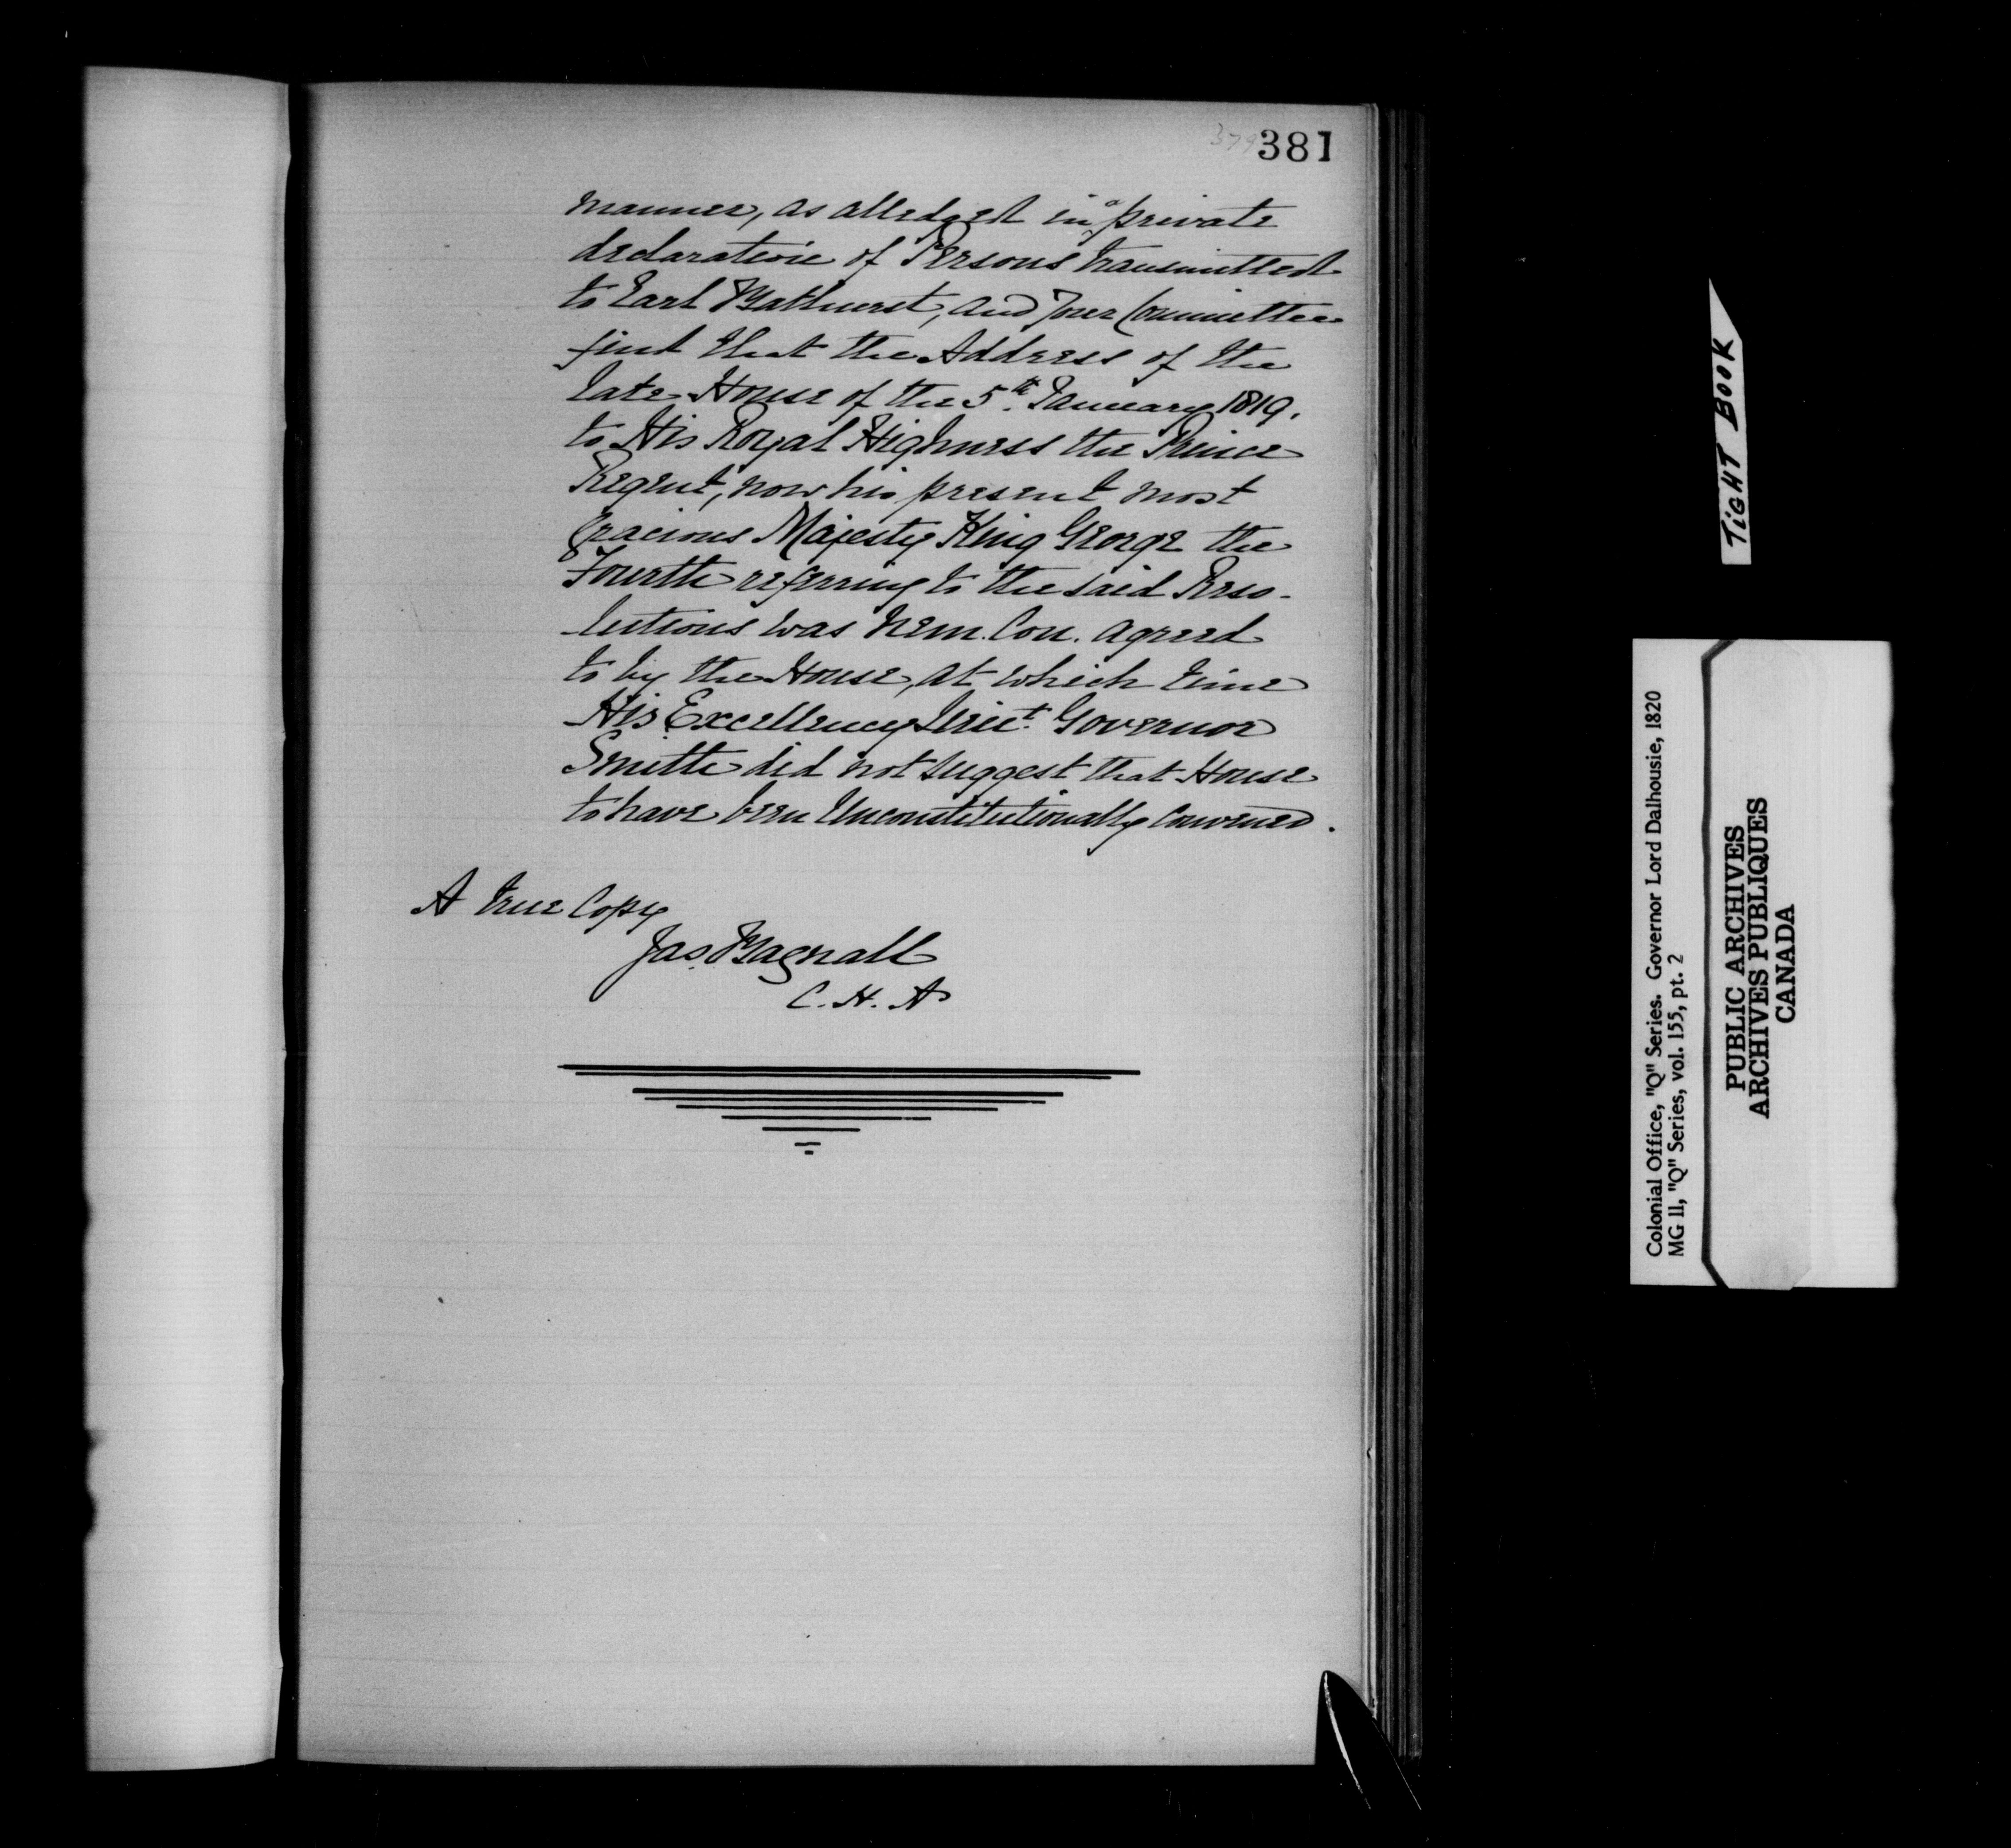 379 381
manner, as alledged in a private
declaration of Persons transmitted
to Earl Bathurst, and Your Committee
find that the Address of the
late House of the 5th. January 1819.
to His Royal Highness the Prince
Regent, now his present most
Gracious Majesty King George the
Fourth referring to the said Reso-
lutions was Nem. Con. agreed
to by the House, at which time
His Excellency Lieut. Governor
Smith did not suggest that House
to have been Unconstitutionally Convened.
A true Copy
Jas. Bagnall
C. H. A
TIGHT BOOK
Colonial Office, "Q" Series. Governor Lord Dalhousie, 1820
MG 11, "Q" Series, vol. 155, pt. 2
PUBLIC ARCHIVES
ARCHIVES PUBLIQUES
CANADA